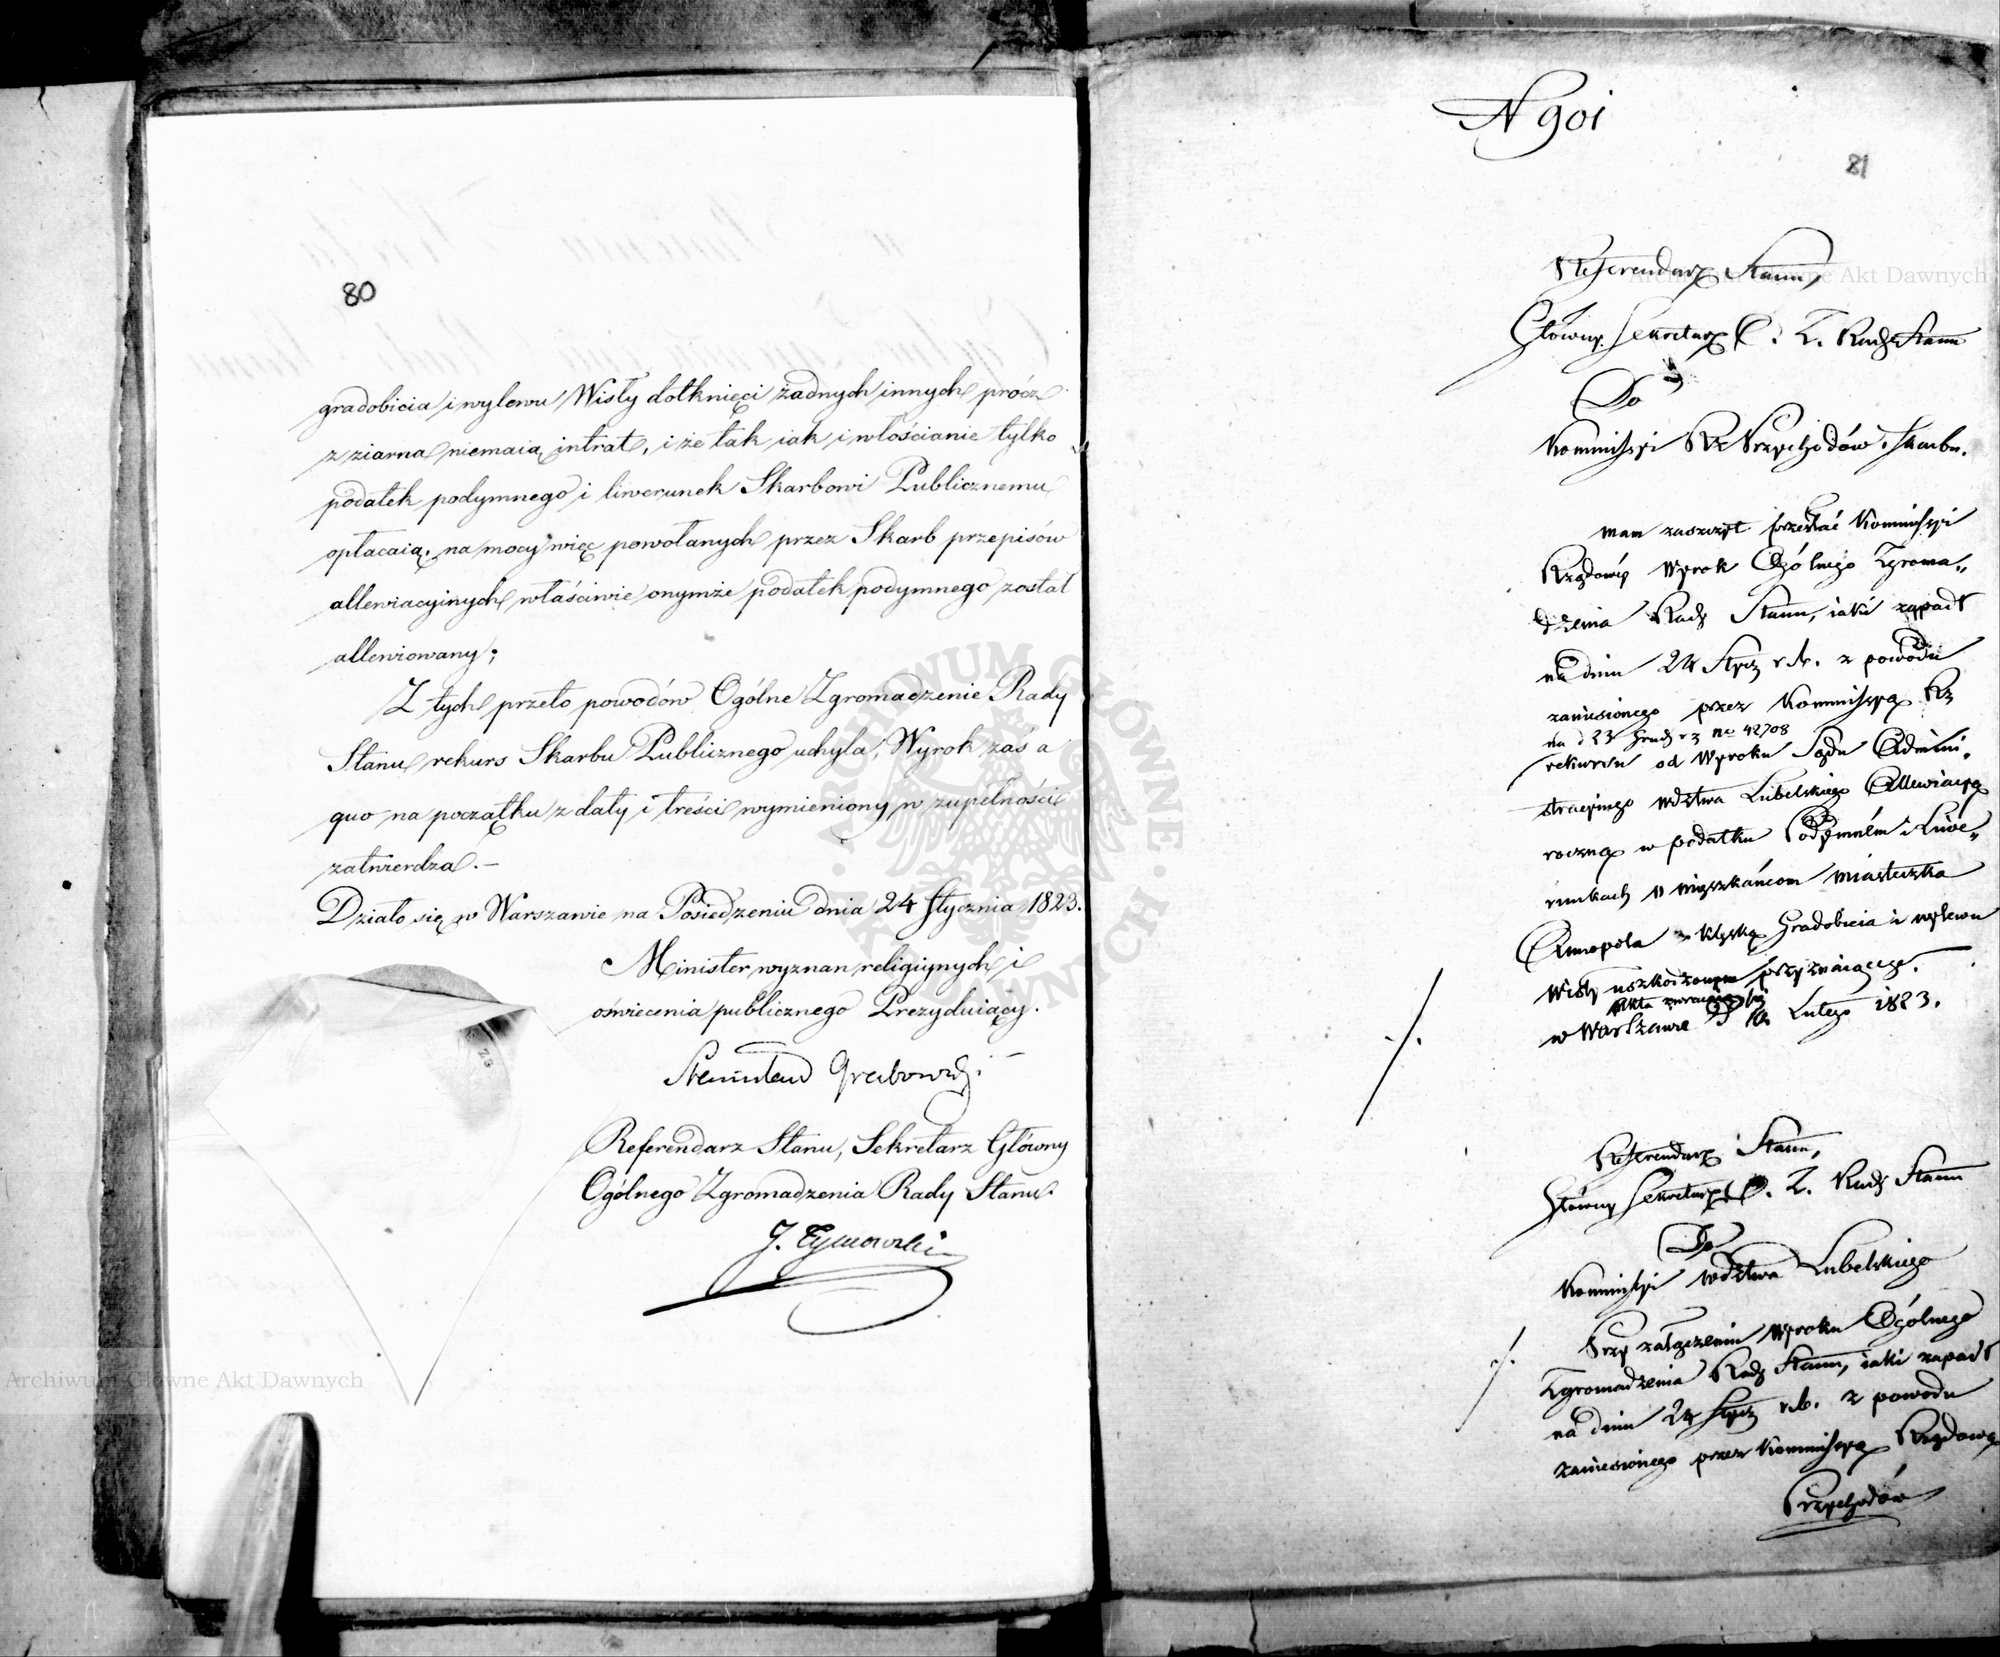 80
gradobicia i wylewu Wisły dotknięci żadnych innych prócz
z ziarna niemaią intrat, i że tak iak i włościanie tylko
podatek podymnego i liwerunek Skarbowi Publicznemu
opłacaią, na mocy więc powołanych przez Skarb przepisów
allewiacyinych właściwie onymże podatek podymnego został
allewiowany;
Z tych przeto powodów Ogólne Zgromadzenie Rady
Stanu rekurs Skarbu Publicznego uchyla, Wyrok zaś a
quo na początku z daty i treści wymieniony w zupełności
zatwierdza. –
Działo się w Warszawie na Posiedzeniu dnia 24 Stycznia 1823.
Minister wyznan religiynych i
oświecenia publicznego Prezyduiący.
Stanisław Grabowski
Referendarz Stanu, Sekretarz Główny
Ogólnego Zgromadzenia Rady Stanu.
J. Tymowski
N 901
81
Referendarz Stanu,
Główny Sekretarz O. Z. Rady Stanu
Do
Kommissyi Rz Przychodów i Skarbu.
Mam zaszczyt przesłać Kommissyi
Rządowéy Wyrok Ogólnego Zgroma„
dzenia Rady Stanu, iaki zapadł
na dniu 24 Stycz r. b. z powodu
zaniesionego przez Kommissyą Rz
na d 23 Grud r z No 42708
rekursu od Wyroku Sądu Admini„
stracyinego wdztwa Lubelskiego Allewiacyą
roczną w podatku Podymném i Liwe„
runkach Mieszkańcom miasteczka
Annopola klęską Gradobicia i wylewu
Wisły uszkodzonym przyznaiącego.
Akta zwracaią się
w Warszawie D 10 Lutego 1823.
./.
Referendarz Stanu,
Główny Sekretarz O. Z. Rady Stanu
Do
Kommissyi wdztwa Lubelskiego
Przy załączeniu Wyroku Ogólnego
Zgromadzenia Rady Stanu, iaki zapadł
na dniu 24 Stycz r. b. z powodu
zaniesionego przez Kommissyą Rządową
Przychodów
./.
Archiwum Główne Akt Dawnych
Archiwum Główne Akt Dawnych
ARCHIWUM GŁÓWNE AKT DAWNYCH